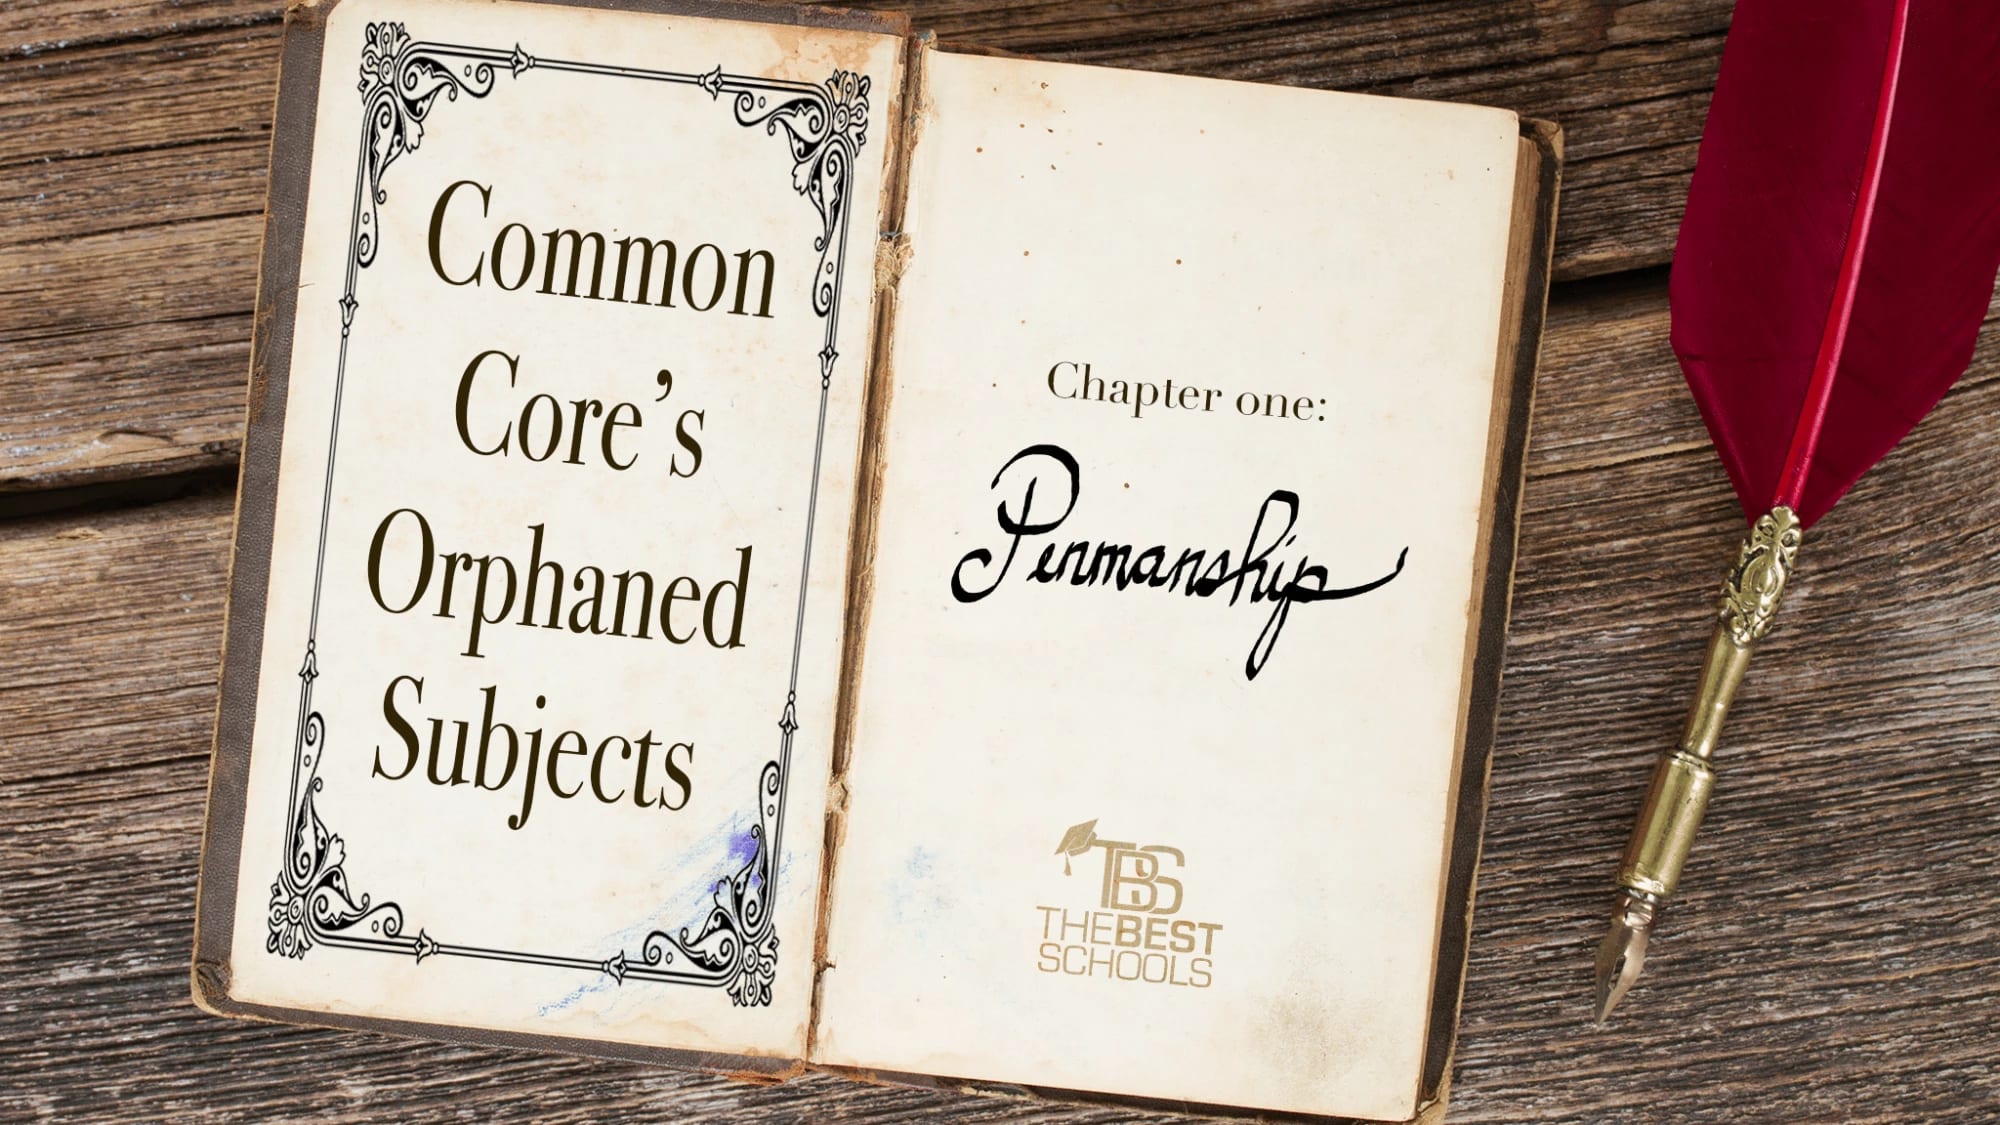 Common
Core’s
Orphaned
Subjects
Chapter one:
Penmanship
TBS
THEBEST
SCHOOLS